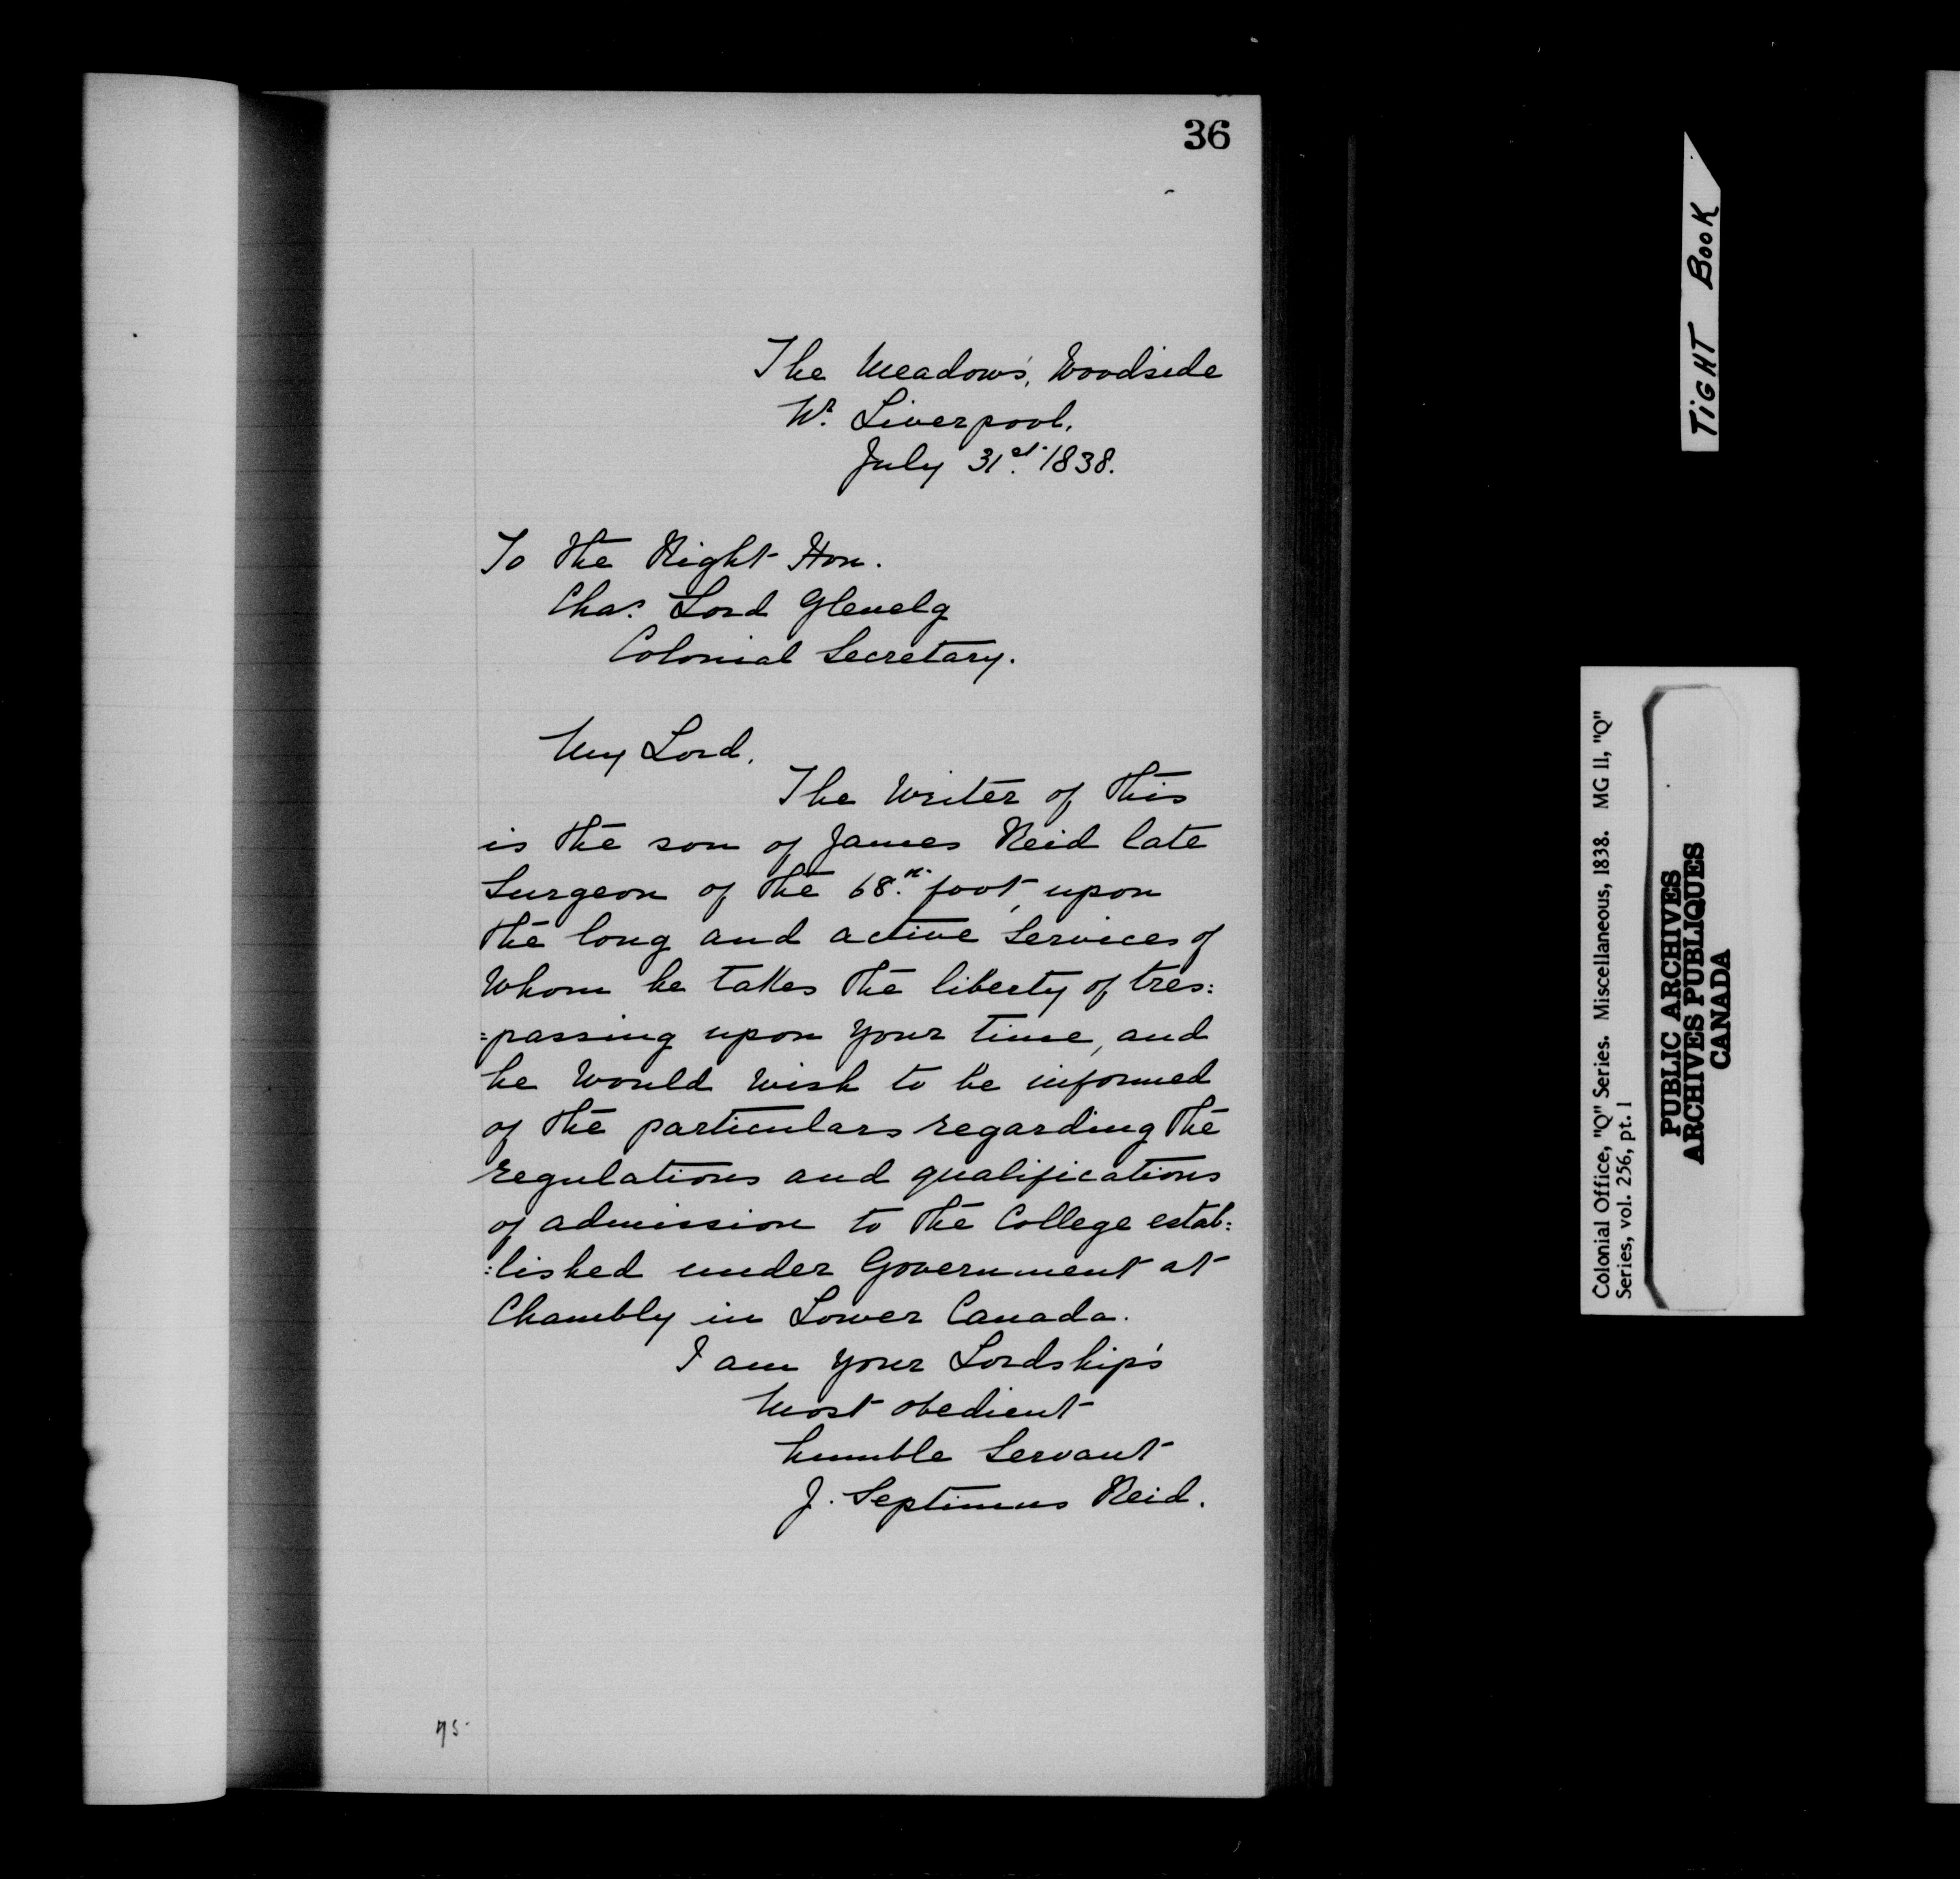 36
The Meadows, Woodside
Nr. Liverpool.
July 31st. 1838.
To the Right Hon.
Chas. Lord Glenelg
Colonial Secretary.
My Lord,
The Writer of this
is the son of James Reid late
Surgeon of the 68th. foot, upon
the long and active Services of
Whom he takes the liberty of tres:
=passing upon your time, and
he would wish to be informed
of the particulars regarding the
regulations and qualifications
of admission to the College estab:
:lished under Government at
Chambly in Lower Canada.
I am your Lordship's
Most obedient
humble Servant
J. Septimus Reid.
TIGHT BOOK
Colonial Office, "Q" Series. Miscellaneous, 1838. MG 11, "Q"
Series, vol. 256, pt. 1
PUBLIC ARCHIVES
ARCHIVES PUBLIQUES
CANADA